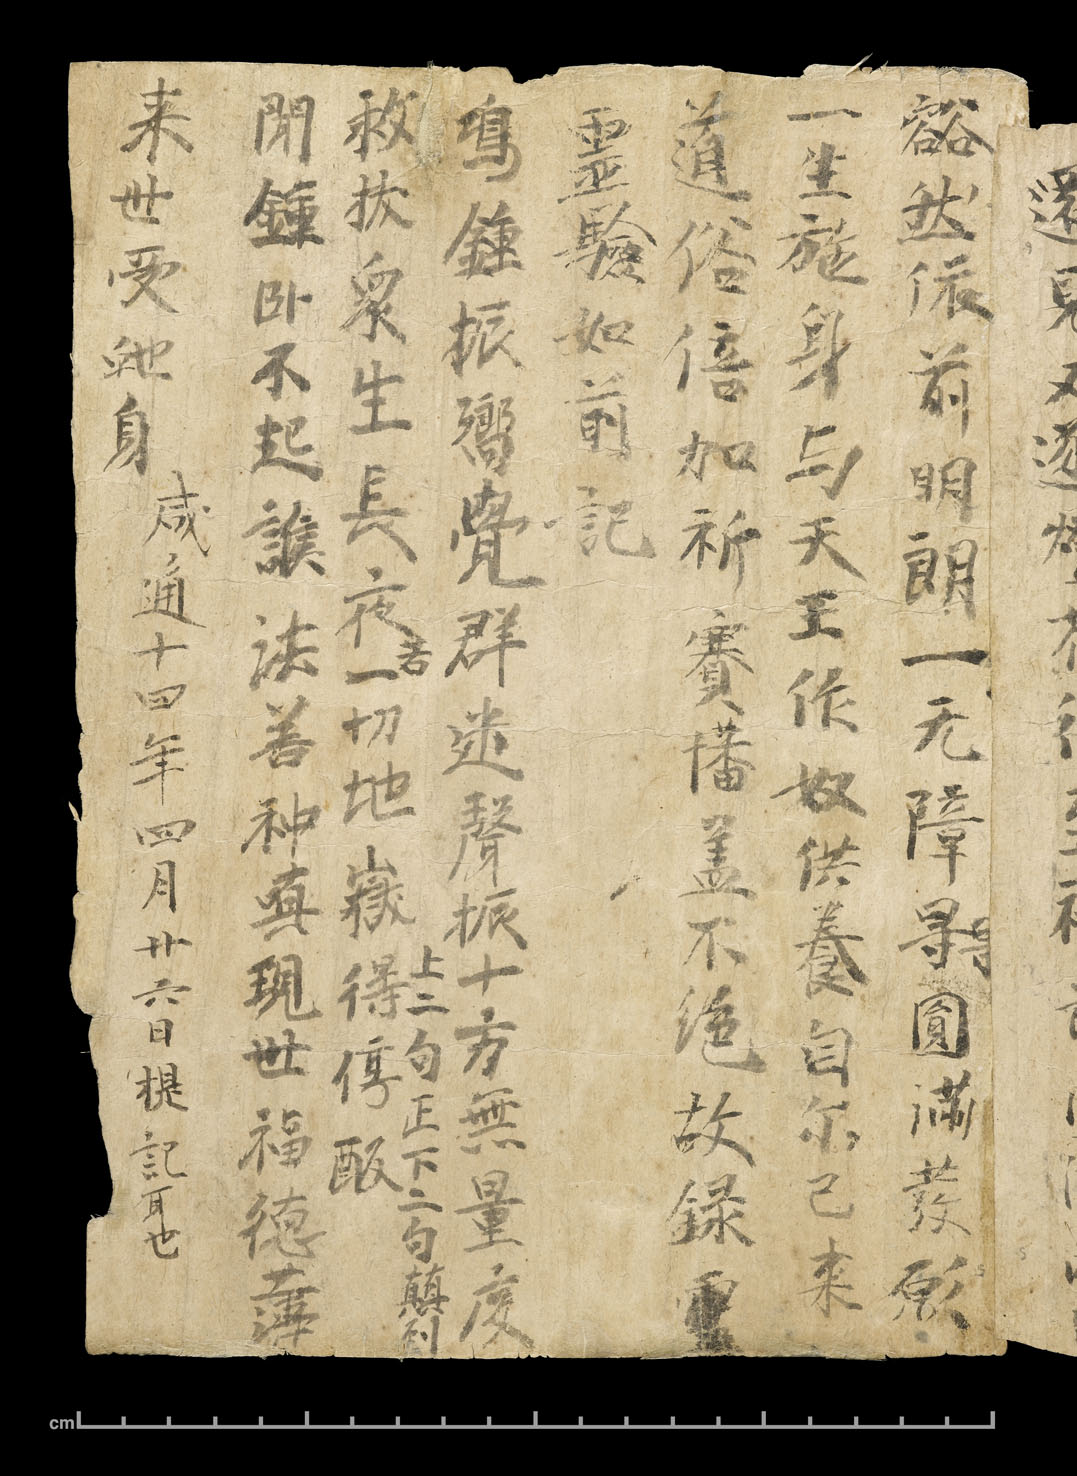 還見
豁然依前明朗一无障㝵圓滿發願
一生施身与天王作奴供養自尒已来
道俗倍加祈賽播盖不絶故録靈
靈驗如前記
鳴鍾振嚮覺群迷聲振十方無量度
救拔衆生長夜苦一切地嶽得停酸
上二句正下二句顛到
聞鍾卧不起護法善神嗔現世福德薄
来世受虵身
咸通十四年四月廿六日提記耳也